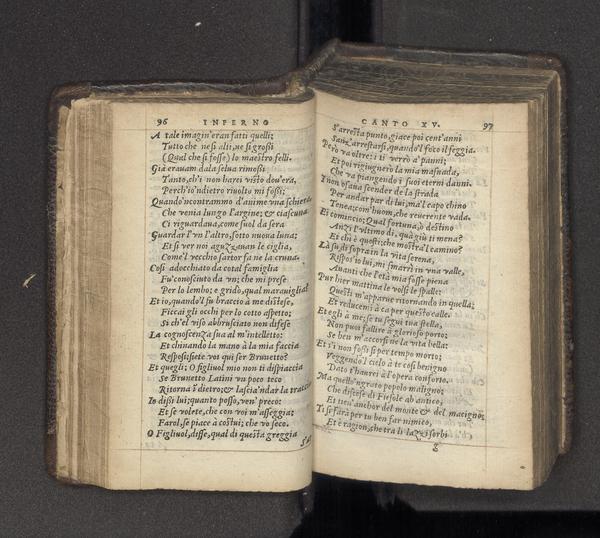 96 INFERNO
A tale imagin'eran fatti quelli;
Tutto che ne si alti, ne si grossi
(Qual che si fosse) lo maestro felli.
Già eravam da la selva rimossi
Tanto, ch'i non harei visto dov'era,
Perch'io'ndietro rivolto mi fossi;
Quando'ncontrammo d'anime vna schiera
Che venia lungo l'argine; & ciascuna
Ci riguardava, come suol da sera
Guardar l'vn l'altro, sotto nuova luna;
Et si ver noi aguzzavan le ciglia,
Come'l vecchio sartor fa ne la cruna.
Cosi adocchiato da cotal famiglia
Fu'conosciuto da vn; che mi prese
Per lo lembo; e gridò, qual maraviglia?
Et io, quando'l su braccio à me distese,
Ficcai gli occhi per lo cotto aspetto;
Si ch'el viso abbrusciato non difese
La cognoscenza sua al m'intelletto:
Et chinando la mano à la mia faccia
Resposi; sete voi qui ser Brunetto?
Et quegli; O figliuol mio non ti dispiaccia
Se Brunetto Latini vn poco teco
Ritorna i'dietro; & lascia'ndar la traccia
Io dissi lui; quanto posso, ven' preco:
Et se volete, che con voi m'asseggia;
Farol, se piace à costui; che vo seco.
O Figliuol, disse, qual di questa greggia
S'ar
CANTO XV. 97
S'arresta punto, giace poi cent'anni
Sanz'arrestarsi, quando'l foco il feggia.
Però va oltre: i ti verrò a'panni;
Et poi rigiugnerò la mia masnada,
Che va piangendo i suoi eterni danni.
I non osava scender de la strada
Per andar par di lui, ma'l capo chino
Tenea; com'huom, che reverente vada.
Ei comincio; Qual fortuna, ò destino
Anzi l'vltimo dì, qua giù ti mena?
Et chi è questi; che mostra'l camino?
Là su di sopra in la vita serena,
Rispos'io lui, mi smarrì in vna valle,
Avanti che l'età mia fosse piena
Pur hier mattina le volsi le spalle:
Questi m'apparve ritornando in quella;
Et reducemi à ca per questo calle.
Et egli à me; se tu segui tua stella,
Non puoi fallire à glorioso porto;
Se ben m'accorsi ne la vita bella:
Et s'i non fossi si per tempo morto;
Veggendo'l cielo à te cosi benigno
Dato t'haurei à l'opera conforto.
Ma quello'ngrato popolo maligno;
Che discese di Fiesole ab antico,
Et tien'anchor del monte & del macigno;
Ti si farà per tu ben far nimico,
Et è ragion, che tra li lazzi sorbi
g